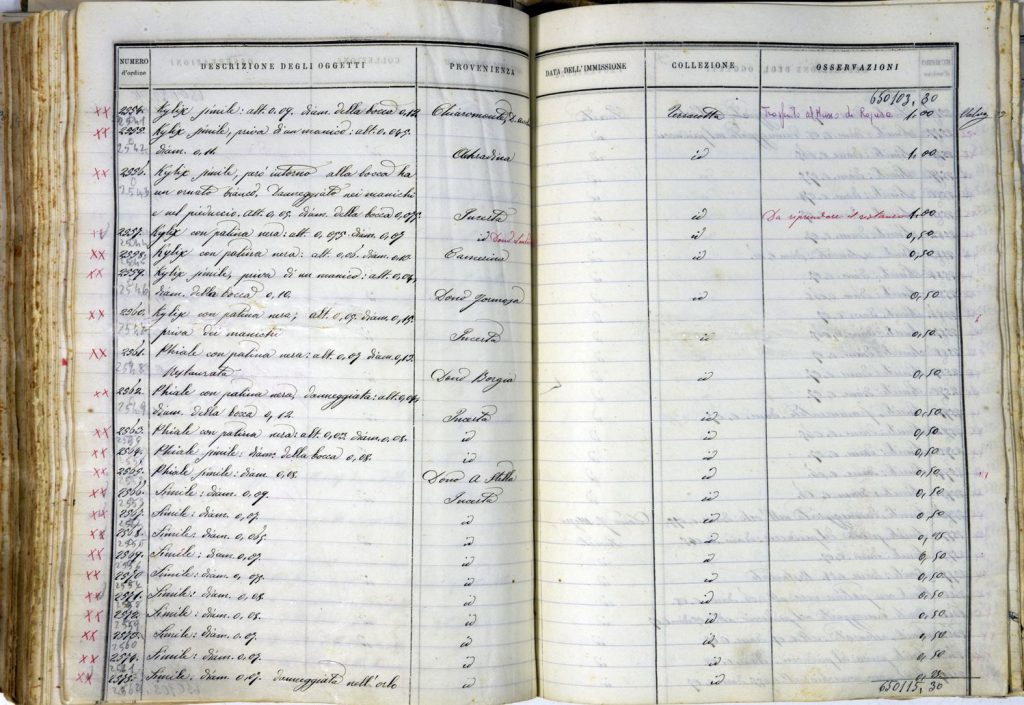 NUMERO d'ordine DESCRIZIONE DEGLI OGGETTI PROVENIENZA DATA DELL'IMMISSIONE COLLEZIONE OSSERVAZIONI
650103,30
XX 2554. Kylix simile: alt. 0,09. diam. della bocca 0,12. Chiaromonte, Terracotta Trasferito al Museo di Ragusa 1,00
2541
XX 2555. Kylix simile, priva di un manico: alt. 0,045.
2542 diam. 0,11. Achradina id id 1,00
XX 2556. Kylix simile, però intorno alla bocca ha
2543 un ornato bianco. Danneggiato nei manichi
e nel pieduccio. alt. 0,05. diam. della bocca 0,075. Incerta id 1,00
2557. Kylix con patina nera: alt. 0,055. diam. 0,07 id Dono id 0,50
XX 2558. Kylix con patina nera: alt. 0,05. diam. 0,10. Camerina id 0,50
XX 2559. Kylix simile, priva di un manico: alt. 0,04,
2546 diam. della bocca 0,10. Dono id 0,50
XX 2560. Kylix con patina nera; alt. 0,05. diam. 0,15.
priva dei manichi Incerta id 0,50
XX 2561. Phiale con patina nera: alt. 0,07. diam. 0,13.
2548 Restaurata Dono Borgia id 0,50
XX 2562. Phiale con patina nera, danneggiata: alt. 0,04,
2549 diam. della bocca 0,12. Incerta id 0,50
XX 2563. Phiale con patina nera: alt. 0,03. diam. 0,08. id id 0,50
XX 2564. Phiale simile: diam. della bocca 0,08. id id 0,50
XX 2565. Phiale simile: diam. 0,08. Dono A id 0,50
XX 2566. Simile: diam. 0,09. Incerta id 0,50
XX 2567. Simile: diam. 0,07. id id 0,50
XX 2568. Simile: diam. 0,065. id id
XX 2569. Simile: diam. 0,07. id id 0,50
XX 2570. Simile: diam. 0,075. id id 0,50
XX 2571. Simile: diam. 0,08. id id 0,50
XX 2572. Simile: diam. 0,08. id id 0,50
XX 2573. Simile: diam. 0,07. id id 0,50
2560
XX 2574. Simile: diam. 0,07. id id 0,50
2561
XX 2575. Simile: diam. 0,07. danneggiata nell'orlo id id
2562 650115,30